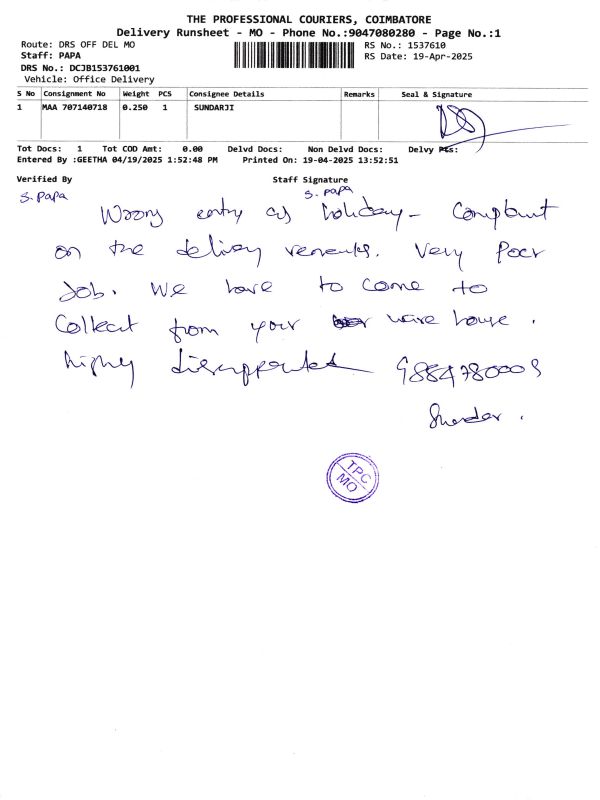 THE PROFESSIONAL COURIERS, COIMBATORE
Delivery Runsheet - MO - Phone No.:9047080280 - Page No.:1
Route: DRS OFF DEL MO RS No.: 1537610
Staff: PAPA RS Date: 19-Apr-2025
DRS No.: DCJB153761001
Vehicle: Office Delivery
S No Consignment No Weight PCS Consignee Details Remarks Seal & Signature
1 MAA 707140718 0.250 1 SUNDARJI
Tot Docs: 1 Tot COD Amt: 0.00 Delvd Docs: Non Delvd Docs: Delvy Pts:
Entered By :GEETHA 04/19/2025 1:52:48 PM Printed On: 19-04-2025 13:52:51
Verified By Staff Signature
S. PAPA S. PAPA
Wrong entry as holiday - Complaint
on the delivery remarks. Very Poor
Job. We have to come to
Collect from your ware house.
highly disappointed 9884780009
TPC
MO